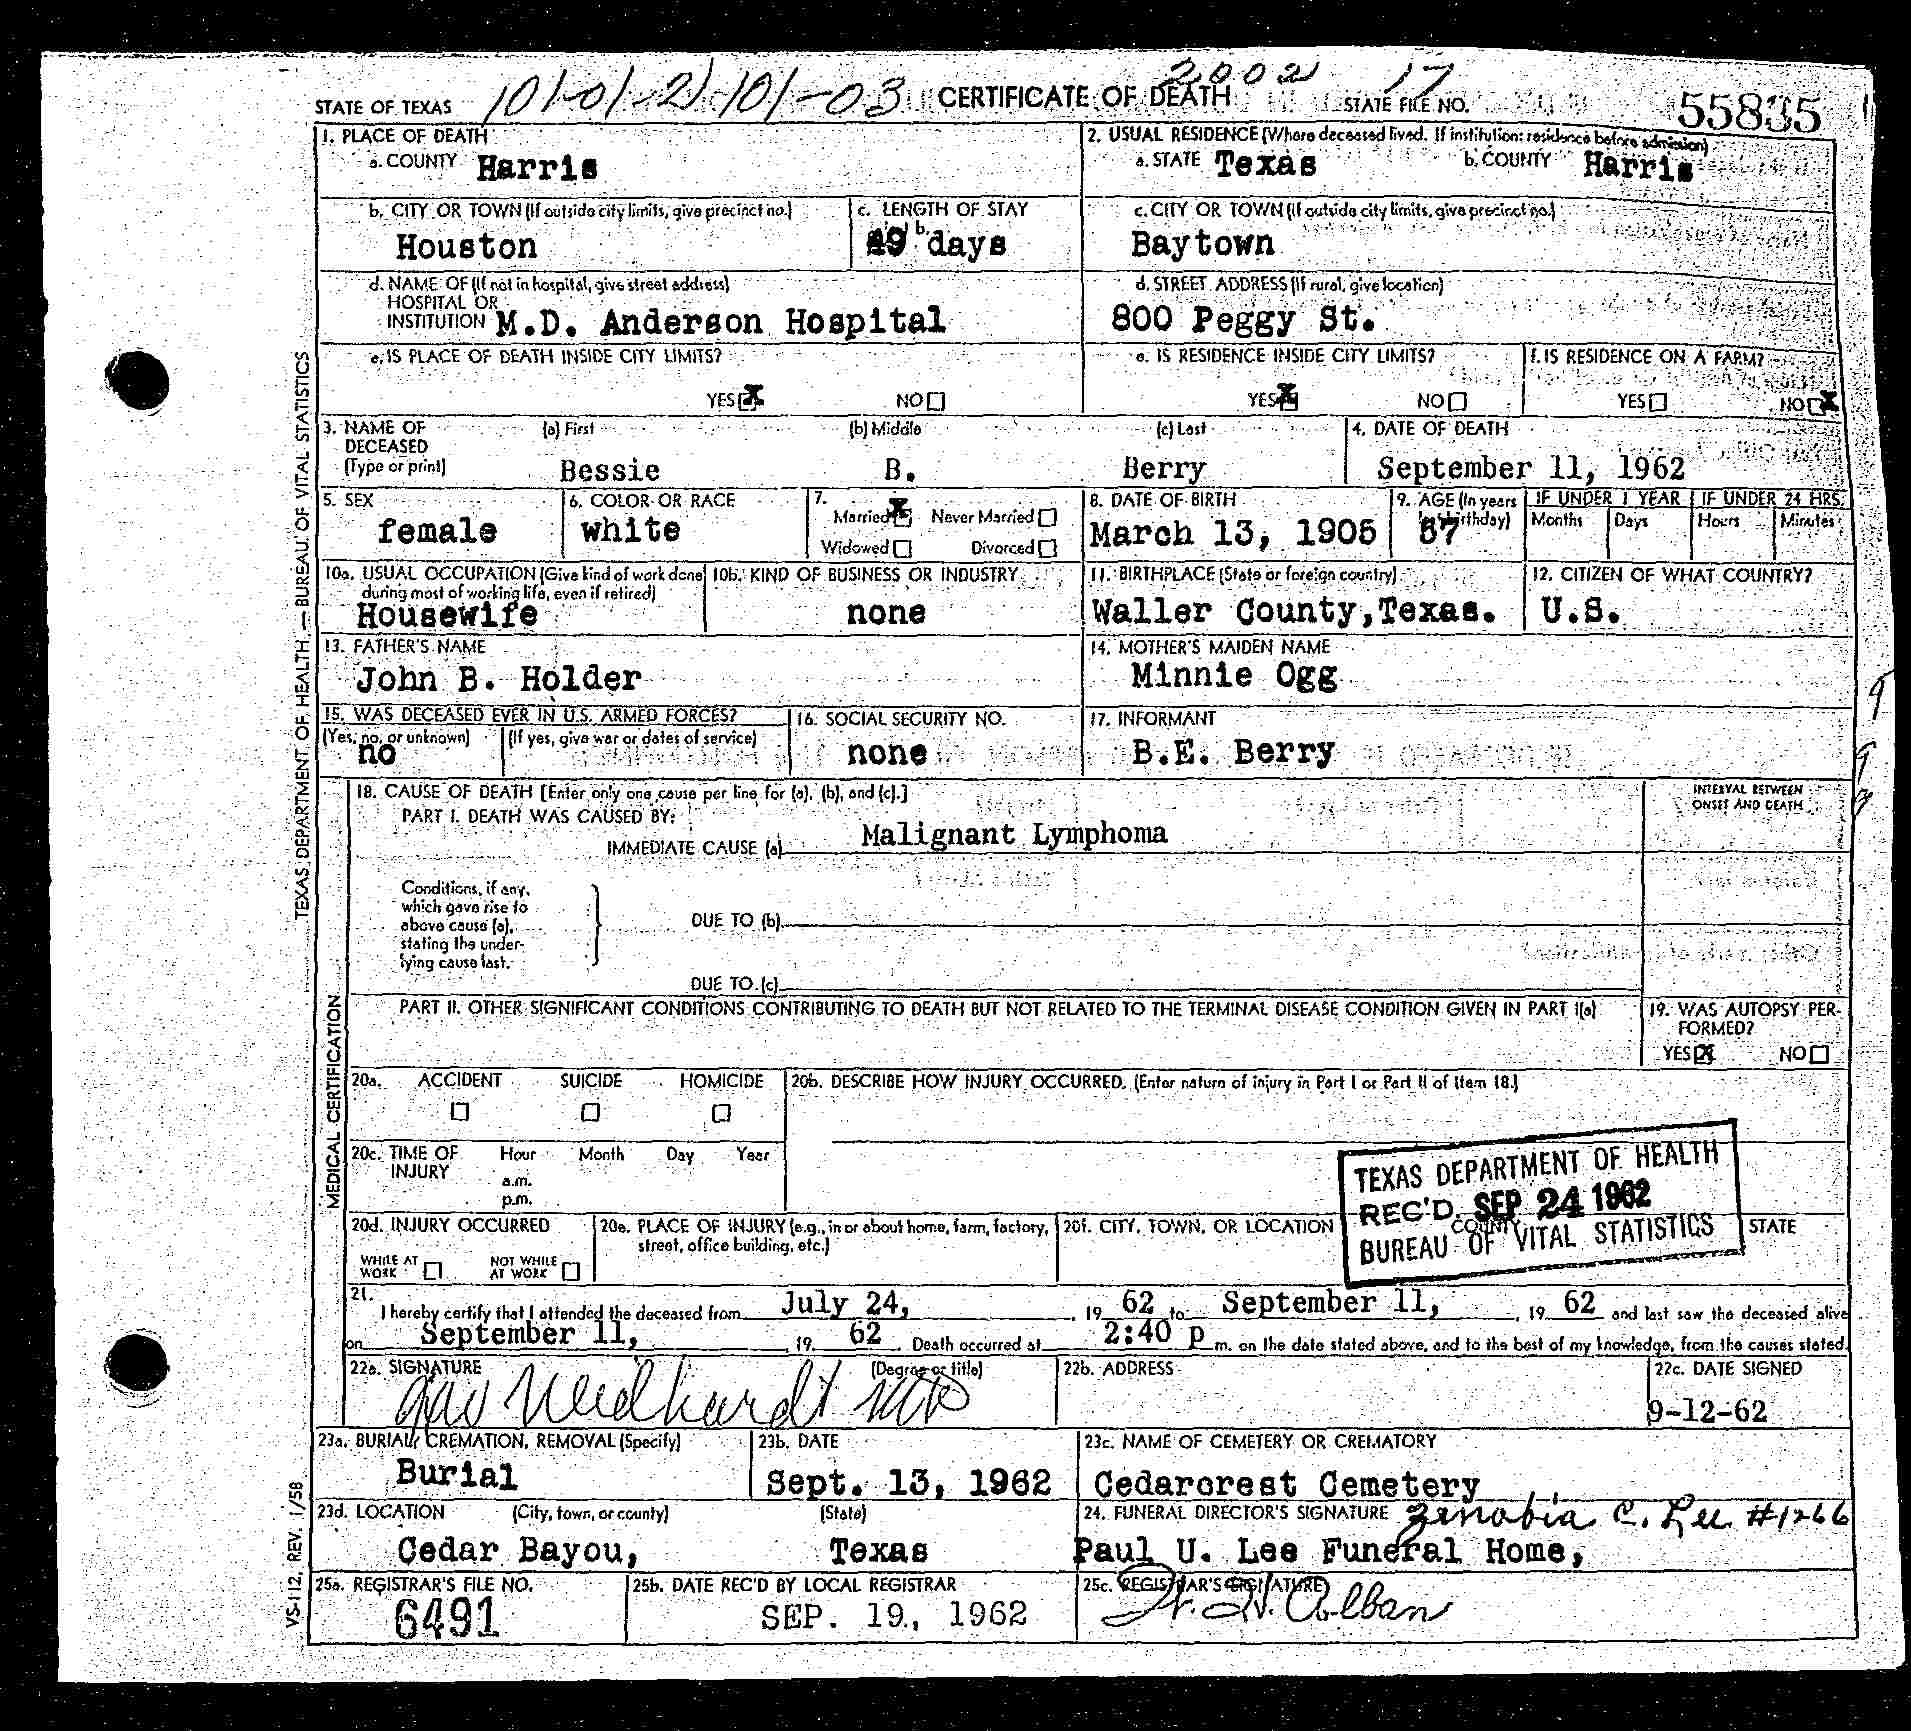 STATE OF TEXAS 101-01-2-101-03 CERTIFICATE OF DEATH 2002 17 STATE FILE NO. 55835
1. PLACE OF DEATH
a. COUNTY Harris
2. USUAL RESIDENCE (Where deceased lived. If institution: residence before admission)
a. STATE Texas b. COUNTY Harris
b. CITY OR TOWN (If outside city limits, give precinct no.)
Houston
c. LENGTH OF STAY
49 days
c. CITY OR TOWN (If outside city limits, give precinct no.)
Baytown
d. NAME OF (If not in hospital, give street address)
HOSPITAL OR
INSTITUTION M.D. Anderson Hospital
d. STREET ADDRESS (If rural, give location)
800 Peggy St.
e. IS PLACE OF DEATH INSIDE CITY LIMITS?
YES X NO
e. IS RESIDENCE INSIDE CITY LIMITS?
YES X NO
f. IS RESIDENCE ON A FARM?
YES NO X
3. NAME OF DECEASED
(Type or print)
(a) First (b) Middle (c) Last
Bessie B. Berry
4. DATE OF DEATH
September 11, 1962
5. SEX
female
6. COLOR OR RACE
white
7.
Married X Never Married
Widowed Divorced
8. DATE OF BIRTH
March 13, 1905
9. AGE (In years last birthday)
57
IF UNDER 1 YEAR IF UNDER 24 HRS.
Months Days Hours Minutes
10a. USUAL OCCUPATION (Give kind of work done
during most of working life, even if retired)
Housewife
10b. KIND OF BUSINESS OR INDUSTRY
none
11. BIRTHPLACE (State or foreign country)
Waller County, Texas.
12. CITIZEN OF WHAT COUNTRY?
U.S.
13. FATHER'S NAME
John B. Holder
14. MOTHER'S MAIDEN NAME
Minnie Ogg
15. WAS DECEASED EVER IN U.S. ARMED FORCES?
(Yes, no, or unknown) (If yes, give war or dates of service)
no
16. SOCIAL SECURITY NO.
none
17. INFORMANT
B.E. Berry
18. CAUSE OF DEATH [Enter only one cause per line for (a), (b), and (c).]
INTERVAL BETWEEN
ONSET AND DEATH
PART I. DEATH WAS CAUSED BY:
IMMEDIATE CAUSE (a) Malignant Lymphoma
Conditions, if any,
which gave rise to
above cause (a),
stating the under-
lying cause last.
DUE TO (b)
DUE TO (c)
PART II. OTHER SIGNIFICANT CONDITIONS CONTRIBUTING TO DEATH BUT NOT RELATED TO THE TERMINAL DISEASE CONDITION GIVEN IN PART I(a)
19. WAS AUTOPSY PER-
FORMED?
YES X NO
20a. ACCIDENT SUICIDE HOMICIDE
20b. DESCRIBE HOW INJURY OCCURRED. (Enter nature of injury in Part I or Part II of Item 18.)
20c. TIME OF INJURY Hour Month Day Year
a.m.
p.m.
TEXAS DEPARTMENT OF HEALTH
REC'D. SEP 24 1962
BUREAU OF VITAL STATISTICS
20d. INJURY OCCURRED
WHILE AT WORK NOT WHILE AT WORK
20e. PLACE OF INJURY (e.g., in or about home, farm, factory,
street, office building, etc.)
20f. CITY, TOWN, OR LOCATION COUNTY STATE
21.
I hereby certify that I attended the deceased from July 24, 19 62 to September 11, 19 62 and last saw the deceased alive
on September 11, 19 62. Death occurred at 2:40 p m. on the date stated above, and to the best of my knowledge, from the causes stated.
22a. SIGNATURE (Degree or title)
Neidhardt MD
22b. ADDRESS
22c. DATE SIGNED
9-12-62
23a. BURIAL, CREMATION, REMOVAL (Specify)
Burial
23b. DATE
Sept. 13, 1962
23c. NAME OF CEMETERY OR CREMATORY
Cedarcrest Cemetery
23d. LOCATION (City, town, or county) (State)
Cedar Bayou, Texas
24. FUNERAL DIRECTOR'S SIGNATURE Zenobia C. Lee #1266
Paul U. Lee Funeral Home,
25a. REGISTRAR'S FILE NO.
6491
25b. DATE REC'D BY LOCAL REGISTRAR
SEP. 19, 1962
25c. REGISTRAR'S SIGNATURE
W. W. Alban
TEXAS DEPARTMENT OF HEALTH — BUREAU OF VITAL STATISTICS
MEDICAL CERTIFICATION
VS-112, REV. 1/58